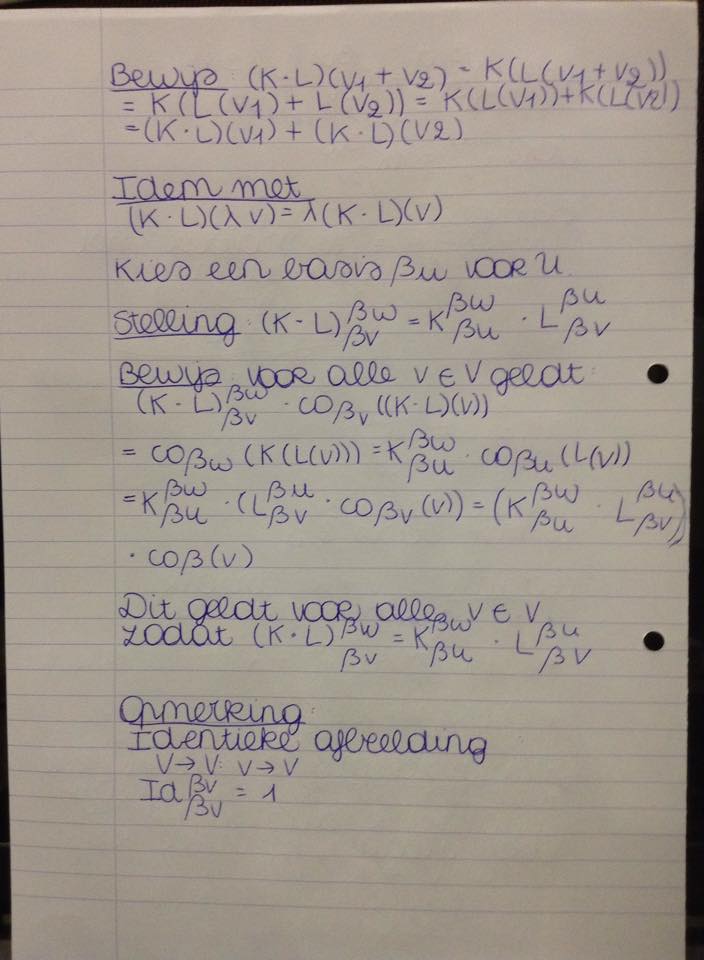 Bewijs (K·L)(V1 + V2) = K(L(V1 + V2))
= K(L(V1) + L(V2)) = K(L(V1)) + K(L(V2))
= (K·L)(V1) + (K·L)(V2)
Idem met
(K·L)(λV) = λ(K·L)(V)
Kies een basis βu voor U.
Stelling: (K·L)^{βw}_{βv} = K^{βw}_{βu} · L^{βu}_{βv}
Bewijs: voor alle v ∈ V geldt:
(K·L)^{βw}_{βv} · co_{βv}((K·L)(v))
= co_{βw}(K(L(v))) = K^{βw}_{βu} · co_{βu}(L(v))
= K^{βw}_{βu} · (L^{βu}_{βv} · co_{βv}(v)) = (K^{βw}_{βu} · L^{βu}_{βv})
· coβ(v)
Dit geldt voor alle v ∈ V
zodat (K·L)^{βw}_{βv} = K^{βw}_{βu} · L^{βu}_{βv}
Opmerking:
Identieke afbeelding
V → V: v → v
Id^{βv}_{βv} = 1